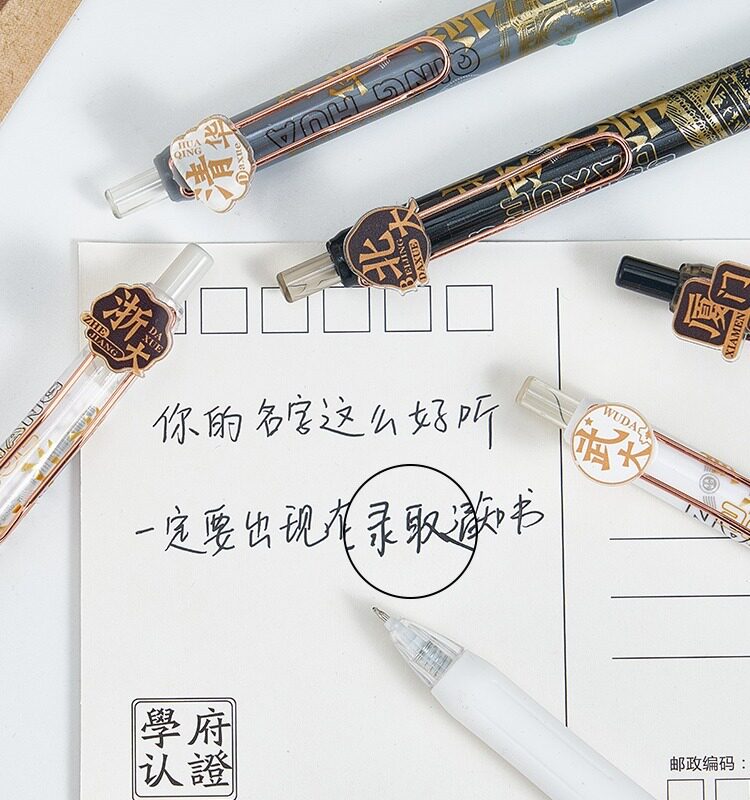 清华
HUA
QING
Daxue
QING HUA
北大
BEIJING
DAXUE
浙大
ZHE
JIANG
DA
XUE
厦门
XIAMEN
WUDA
武大
你的名字这么好听
一定要出现在录取通知书
學府
认證
邮政编码：